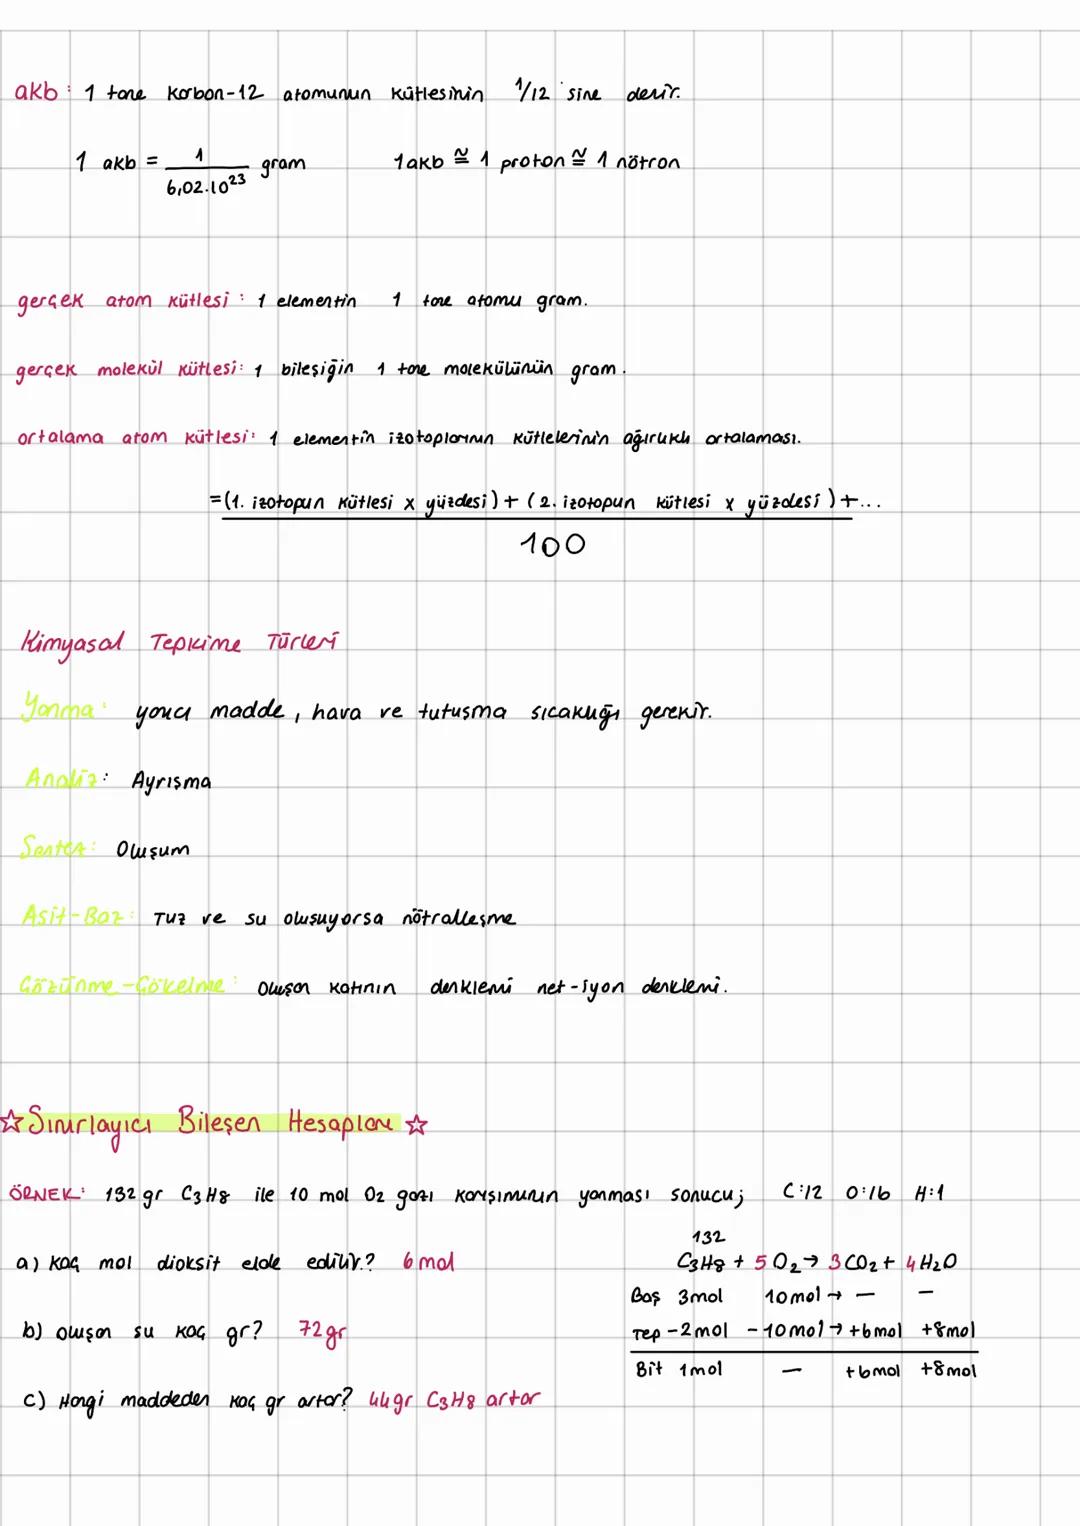 akb : 1 tane karbon-12 atomunun kütlesinin 1/12 'sine denir.
1 akb = 1/6,02.10²³ gram 1akb ≅ 1 proton ≅ 1 nötron
gerçek atom kütlesi : 1 elementin 1 tane atomu gram.
gerçek molekül kütlesi: 1 bileşiğin 1 tane molekülünün gram.
ortalama atom kütlesi: 1 elementin izotoplarının kütlelerinin ağırlıklı ortalaması.
=(1. izotopun kütlesi x yüzdesi) + (2. izotopun kütlesi x yüzdesi) +...
100
Kimyasal Tepkime Türleri
Yanma: yanıcı madde, hava ve tutuşma sıcaklığı gerekir.
Analiz: Ayrışma
Sentez: Oluşum
Asit-Baz: Tuz ve su oluşuyorsa nötralleşme
Çözünme-Çökelme: Oluşan katının denklemi net-iyon denklemi.
☆ Sınırlayıcı Bileşen Hesapları ☆
ÖRNEK: 132 gr C3H8 ile 10 mol O2 gazı karışımının yanması sonucu; C:12 O:16 H:1
132
a) Kaç mol dioksit elde edilir? 6 mol C3H8 + 5 O2 → 3 CO2 + 4 H2O
Baş 3mol 10mol → — —
b) oluşan su kaç gr? 72gr Tep -2mol -10mol → +6mol +8mol
Bit 1mol — +6mol +8mol
c) Hangi maddeden kaç gr artar? 44gr C3H8 artar